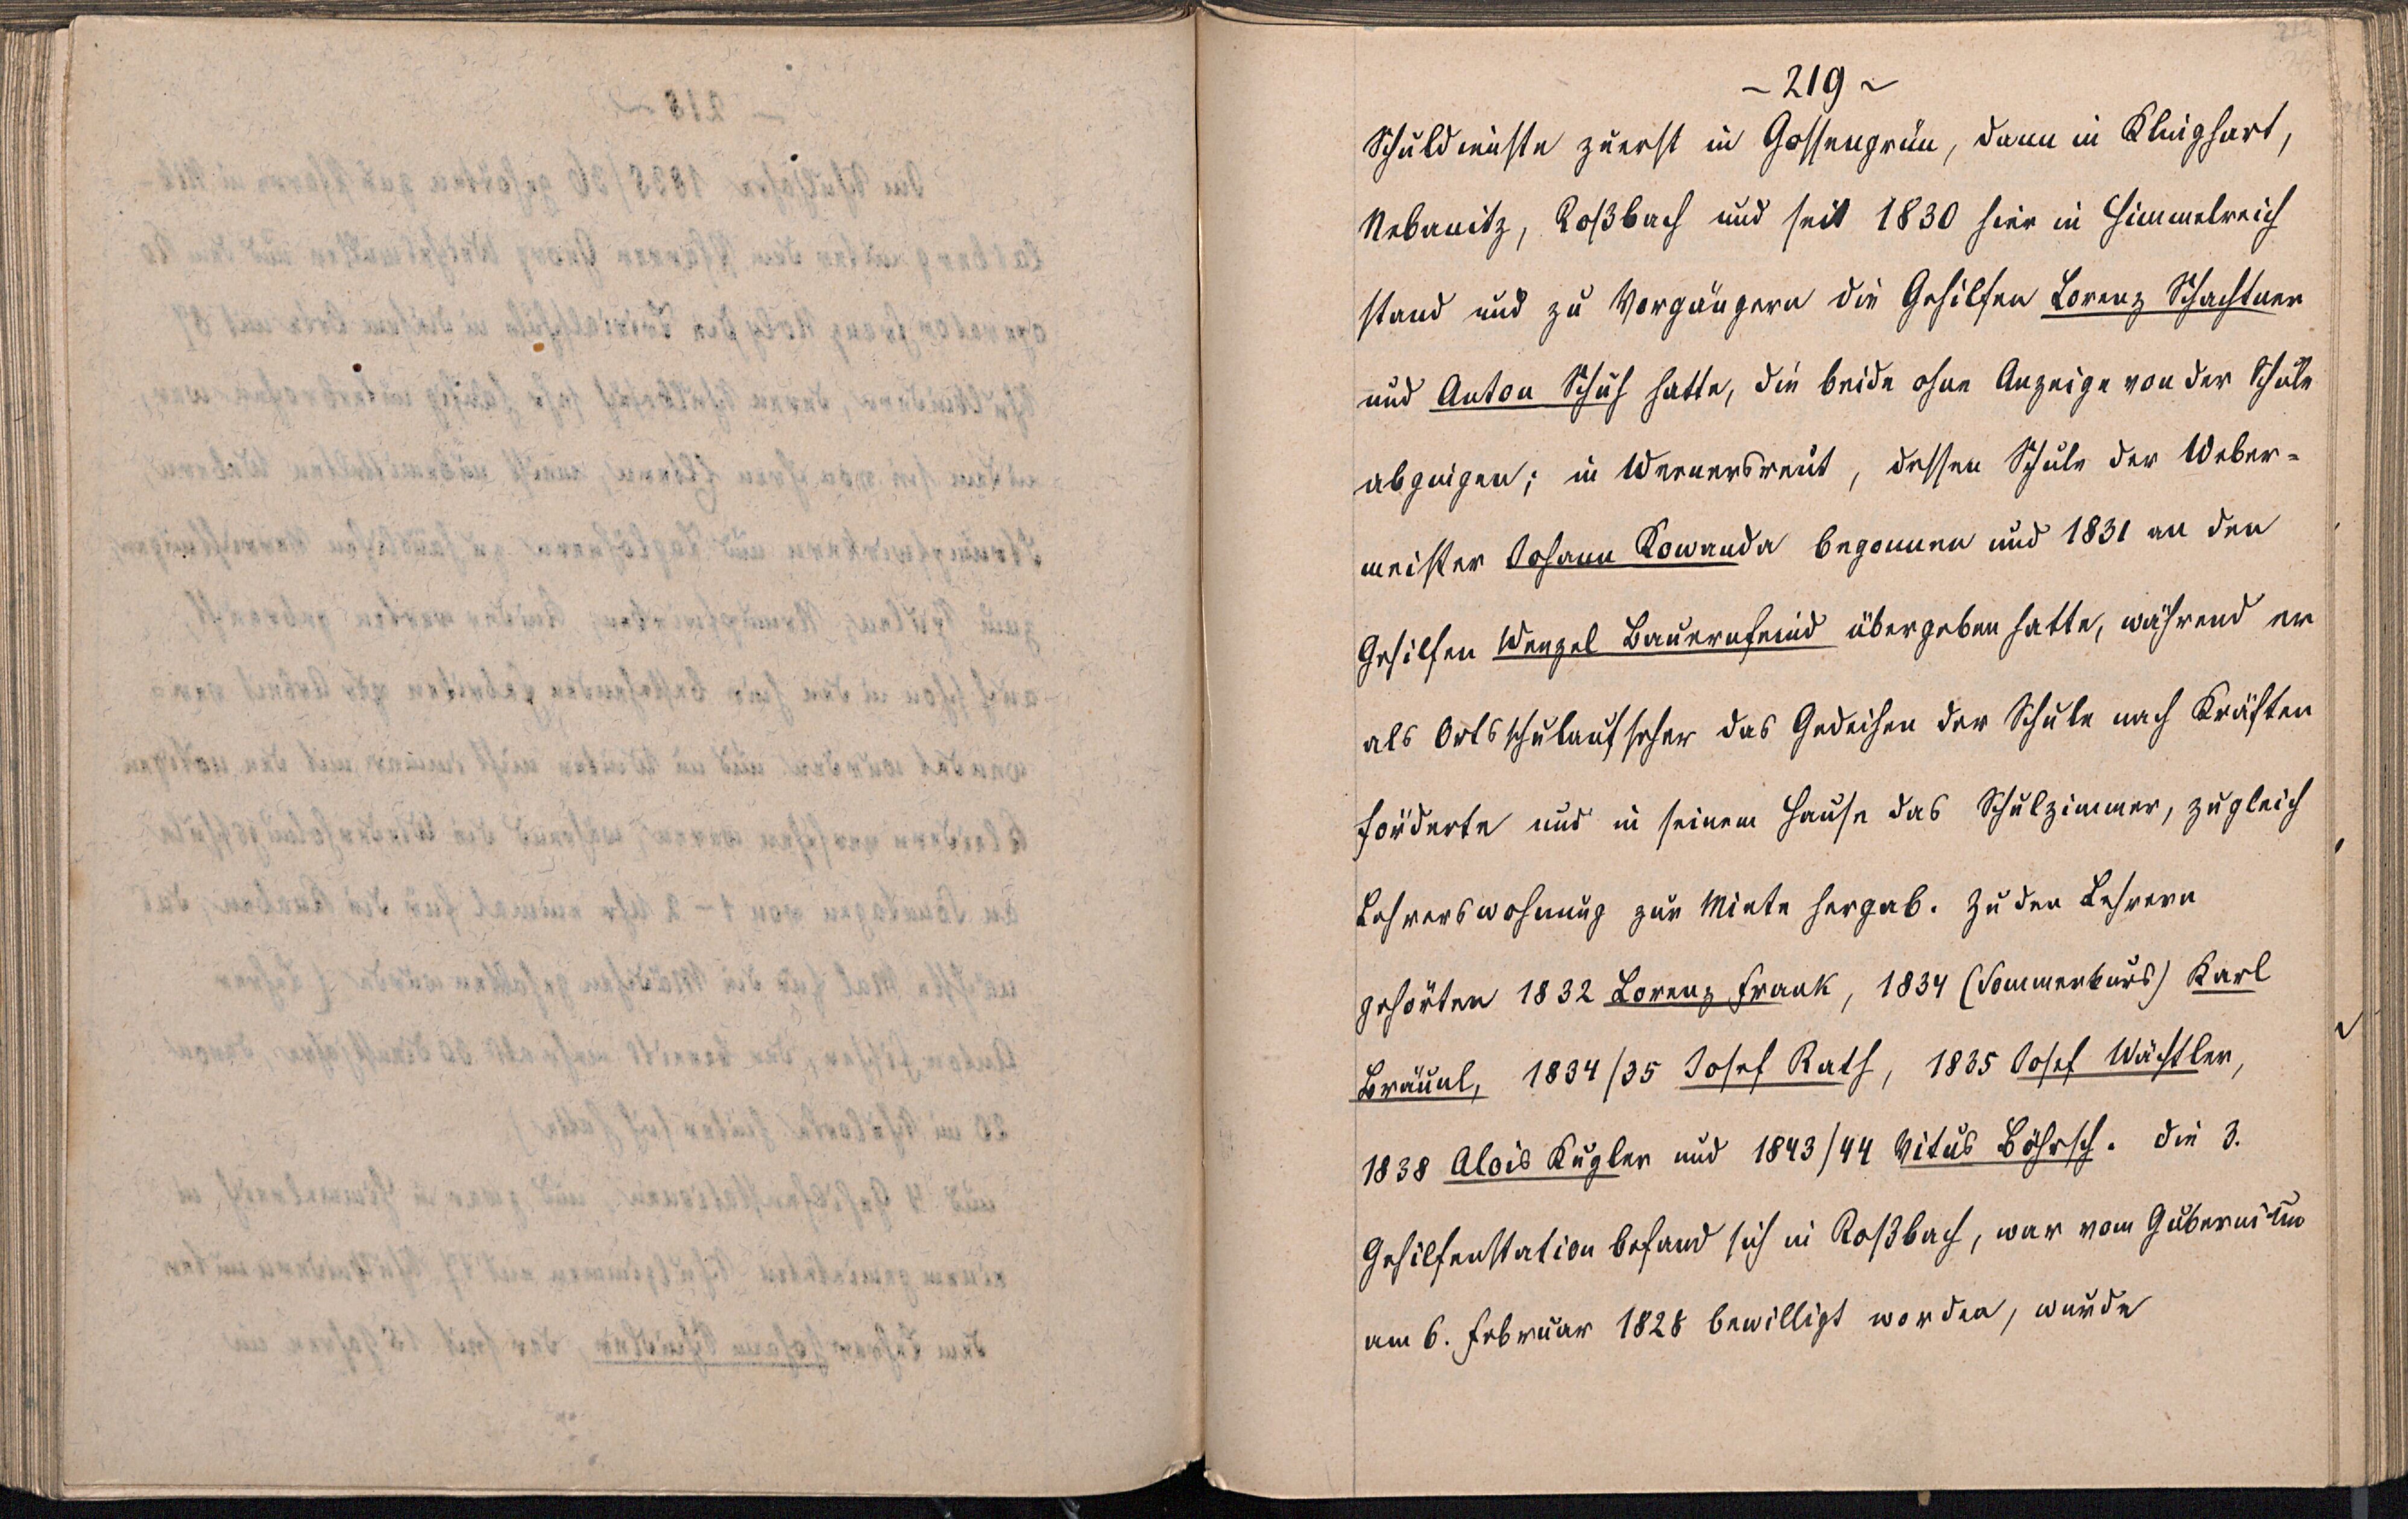 - 219 -
Schuldienste zuerst in Gossengrün, dann in Klinghart,
Nebanitz, Roßbach und seit 1830 hier in Himmelreich
stand und zu Vorgängern die Gehilfen Lorenz Schachtner
und Anton Schuh hatte, die beide ohne Anzeige von der Schule
abgingen; in Wernersreut, dessen Schule der Weber-
meister Johann Kowanda begonnen und 1831 an den
Gehilfen Wenzel Bauernfeind übergeben hatte, während er
als Ortsschulaufseher das Gedeihen der Schule nach Kräften
förderte und in seinem Hause das Schulzimmer, zugleich
Lehrerswohnung zur Miete hergab. Zu den Lehrern
gehörten 1832 Lorenz Frank, 1834 (Sommerkurs) Karl
Bräunl, 1834/35 Josef Rath, 1835 Josef Wächtler,
1838 Alois Kugler und 1843/44 Vitus Böhrsch. Die 3.
Gehilfenstation befand sich in Roßbach, war vom Gubernium
am 6. Februar 1828 bewilligt worden, wurde